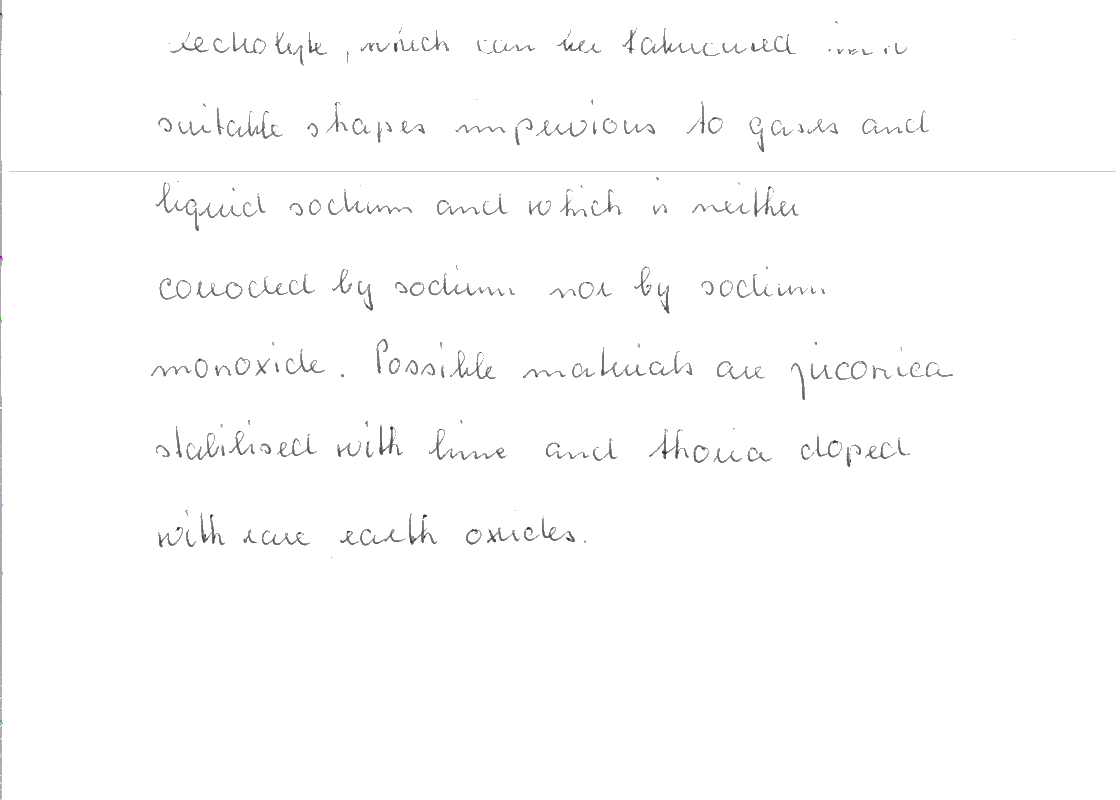 electrolyte, which can be fabricated in
suitable shapes impervious to gases and
liquid sodium and which is neither
corroded by sodium nor by sodium
monoxide. Possible materials are zirconica
stabilised with lime and thoria doped
with rare earth oxides.